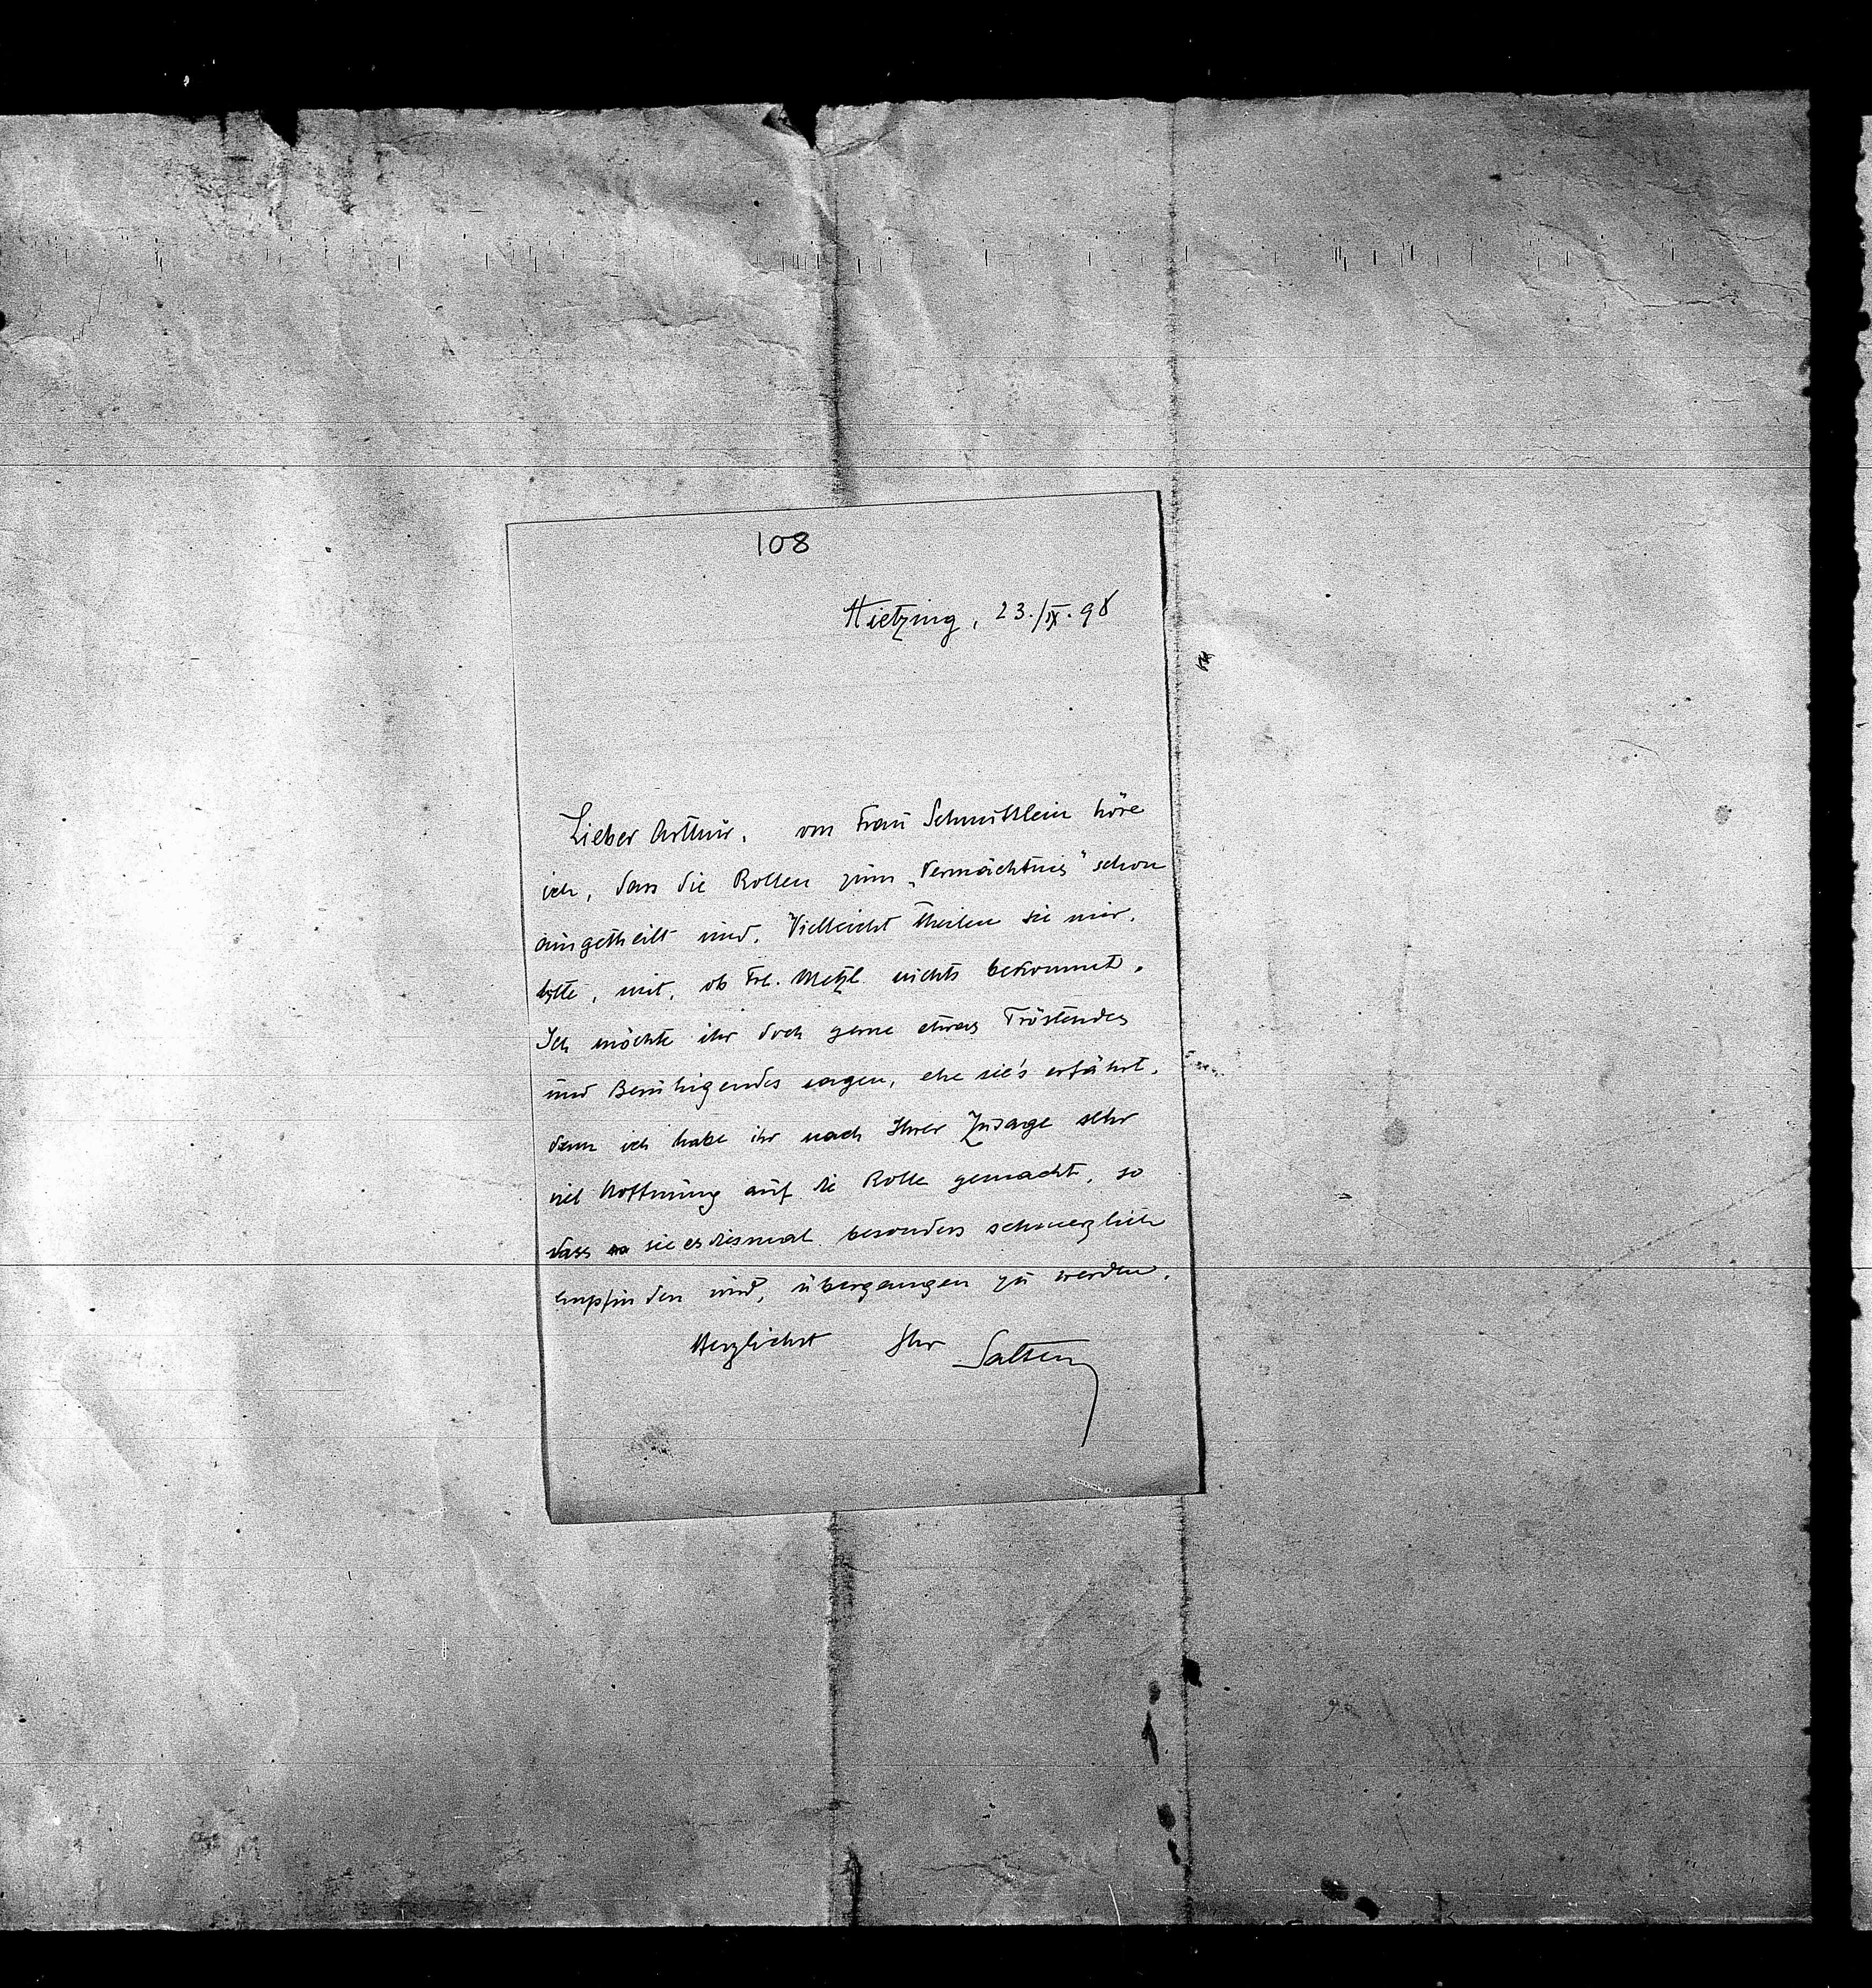 108
Hietzing, 23./IX. 98
Lieber Arthur, von Frau Schmittlein höre
ich, dass die Rollen zum „Vermächtnis" schon
ausgetheilt sind. Vielleicht theilen sie mir,
bitte, mit, ob Frl. Metzl nichts bekommt.
Ich möchte ihr doch gerne etwas Tröstendes
und Beruhigendes sagen, ehe sie's erfährt,
denn ich habe ihr nach Ihrer Zusage sehr
viel Hoffnung auf die Rolle gemacht, so
dass sie es diesmal besonders schmerzlich
empfinden wird, übergangen zu werden.
Herzlichst Ihr Salten